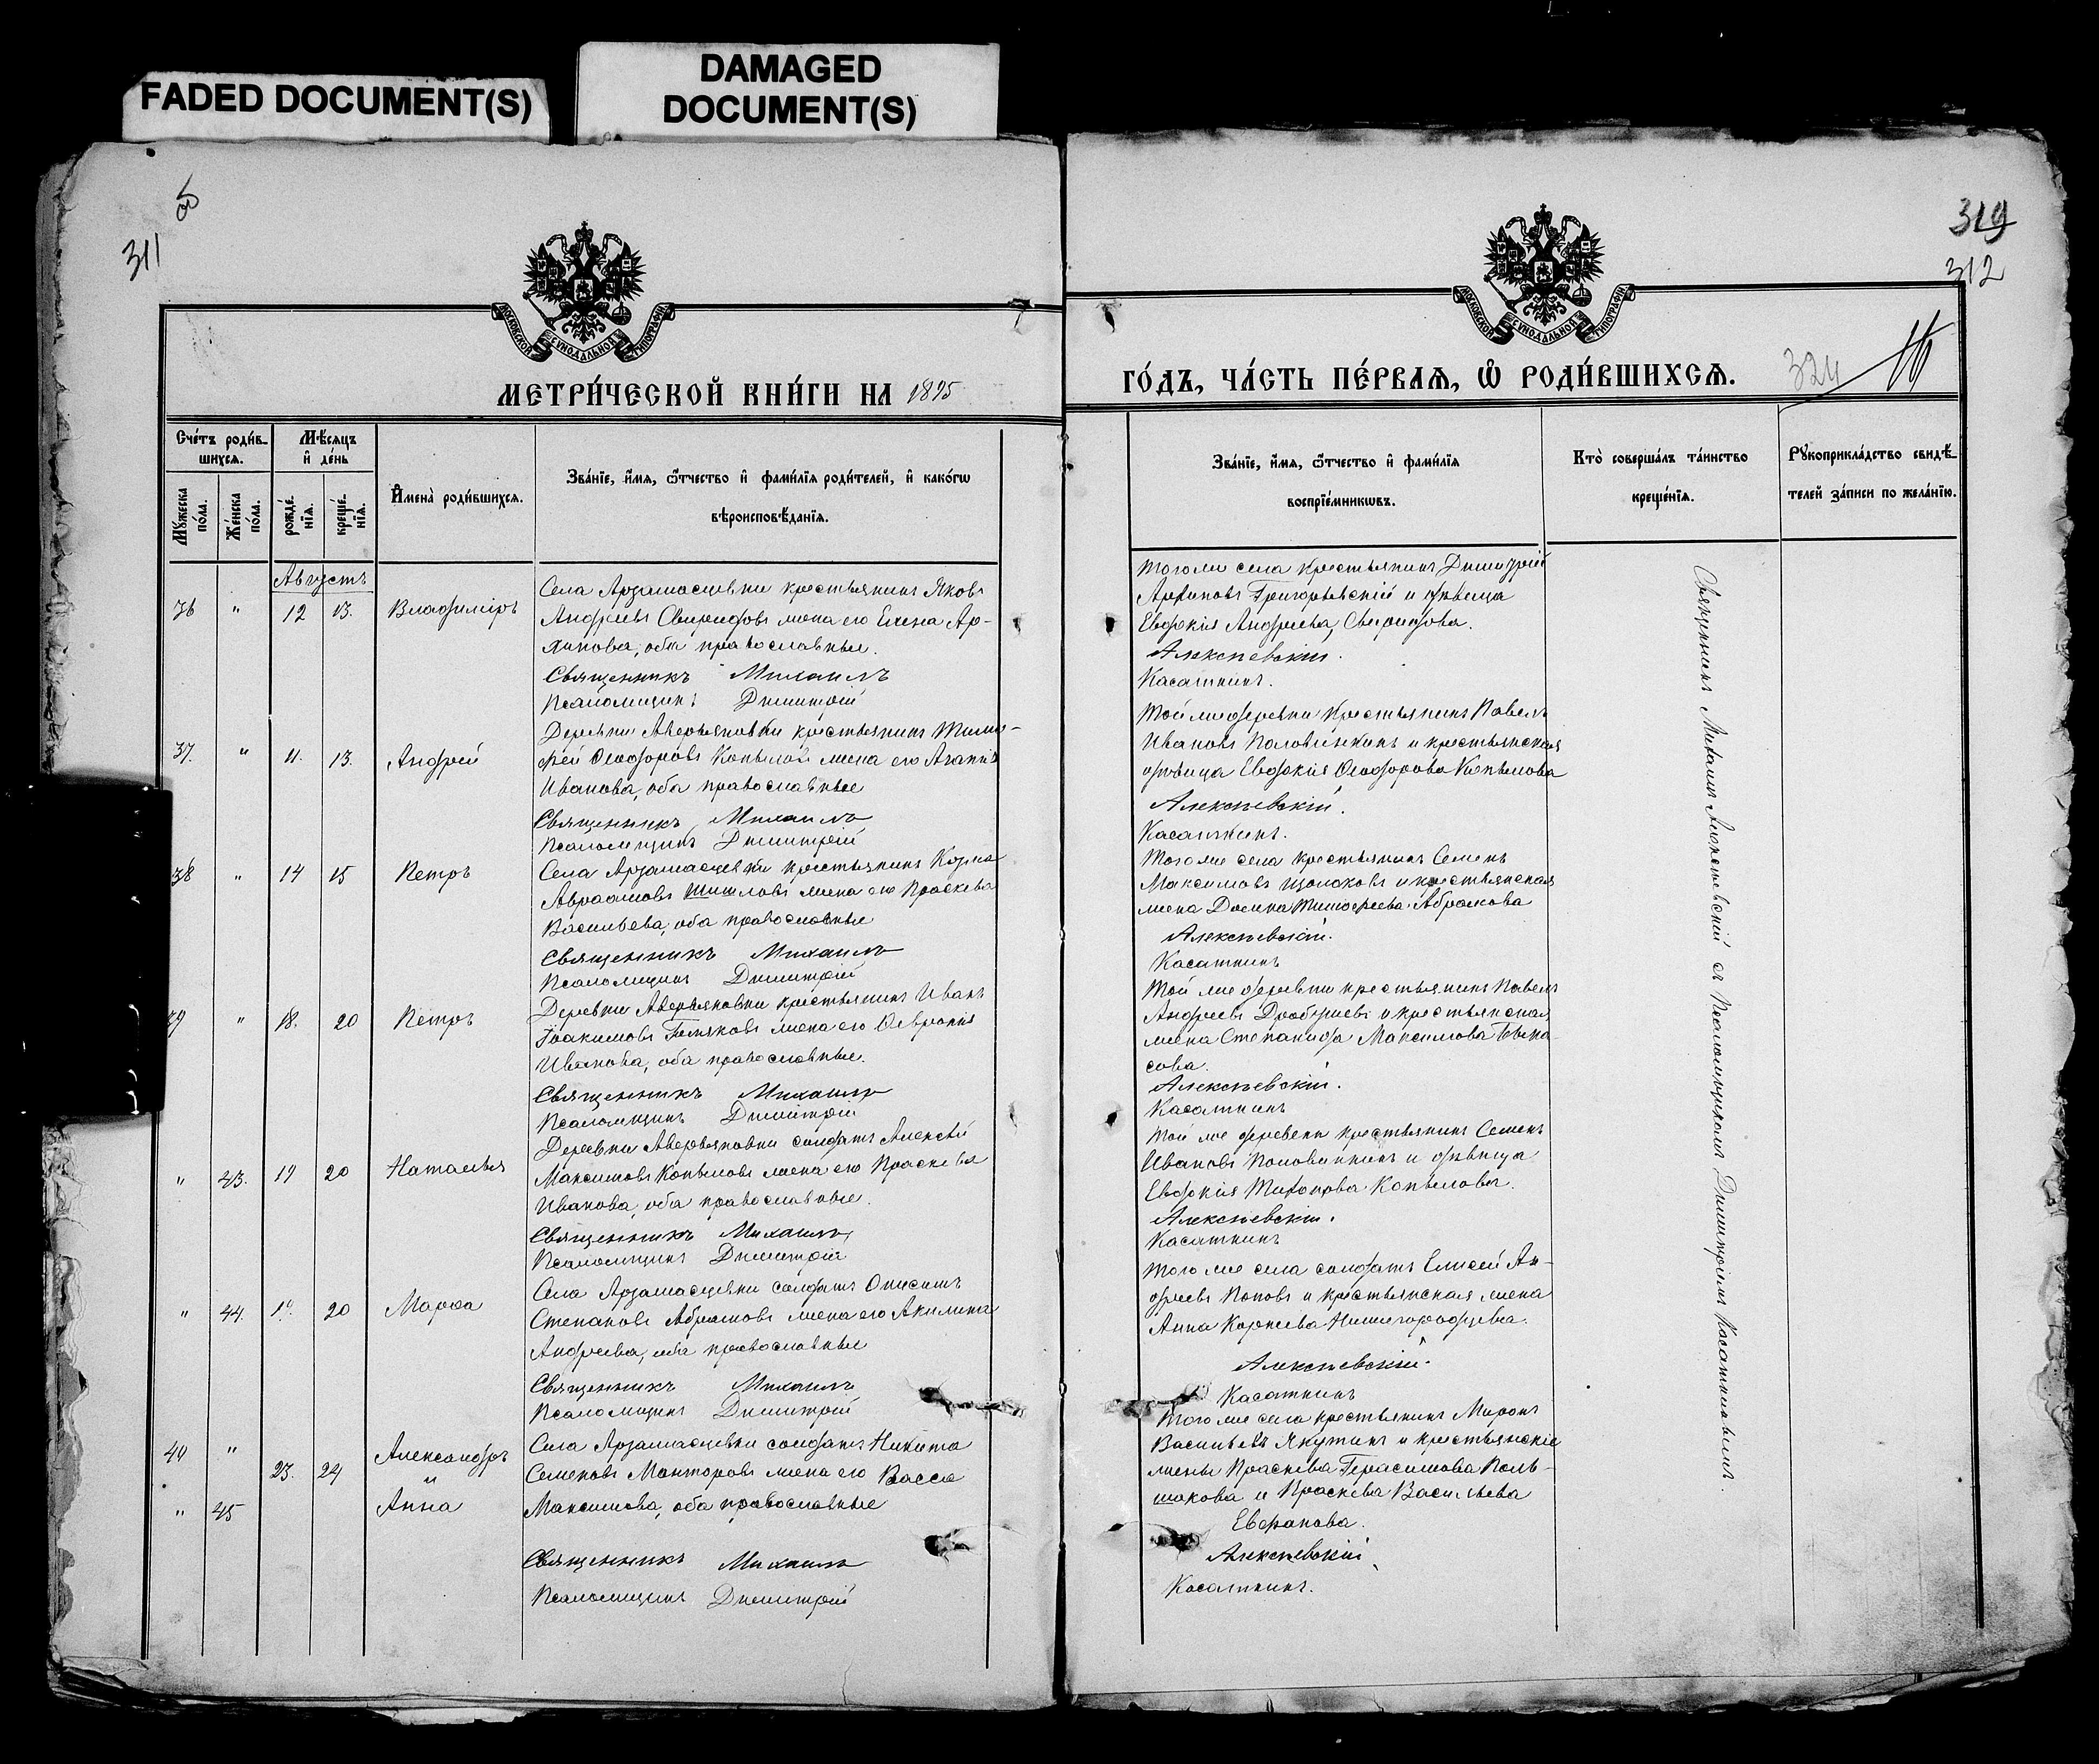 FADED DOCUMENT(S)
DAMAGED
DOCUMENT(S)
311
319
312
324
МОСКОВСКОЙ СѴНОДАЛЬНОЙ ТИПОГРАФІИ
МОСКОВСКОЙ СѴНОДАЛЬНОЙ ТИПОГРАФІИ
МЕТРИ́ЧЕСКОЙ КНИ́ГИ НА 1895
ГО́ДЪ, ЧА́СТЬ ПЕ́РВАѦ, Ѽ РОДИ́ВШИХСѦ.
Сче́тъ роди́в-
шихсѧ.
Мꙋ́жеска по́ла.
Же́нска по́ла.
Мѣ́сѧцъ
и҆ де́нь
рожде́-
нїѧ.
креще́-
нїѧ.
И҆мена̀ роди́вшихсѧ.
Зва́нїе, и҆́мѧ, ѻ҆́тчество и҆ фами́лїѧ роди́телей, и҆ како́гѡ
вѣроисповѣ́данїѧ.
Зва́нїе, и҆́мѧ, ѻ҆́тчество и҆ фами́лїѧ
воспрїе́мникѡвъ.
Кто̀ соверша́лъ та́инство
креще́нїѧ.
Рꙋкоприкла́дство свидѣ́-
телей за́писи по жела́нїю.
Августъ
36 " 12 13. Владиміръ
Села Арзамасцевки крестьянинъ Яковъ
Андреевъ Свиридовъ жена его Елена Ар-
хипова, оба православные.
Священникъ Михаилъ
Псаломщикъ Димитрій
Тогоже села крестьянинъ Димитрій
Архиповъ Григорьевскій и дѣвица
Евдокія Андреева Свиридова.
Алексѣевскій.
Касаткинъ.
37. " 11. 13. Андрей
Деревни Аверьяновки крестьянинъ Тимо-
фей Ѳеодоровъ Копыловъ жена его Агапія
Иванова, оба православные
Священникъ Михаилъ
Псаломщикъ Димитрій
Той же деревни крестьянинъ Павелъ
Ивановъ Половинкинъ и крестьянская
дѣвица Евдокія Ѳеодорова Копылова
Алексѣевскій.
Касаткинъ.
38 " 14 15 Петръ
Села Арзамасцевки крестьянинъ
Авраамовъ жена его Праскева
Васильева, оба православные
Священникъ Михаилъ
Псаломщикъ Димитрій
Тогоже села крестьянинъ Семенъ
Максимовъ и крестьянская
жена Домна Тимофеева Абрамова
Алексѣевскій.
Касаткинъ
39 " 18. 20 Петръ
Деревни Аверьяновки крестьянинъ Иванъ
Іоакимовъ жена его Ѳевронія
Иванова, оба православные.
Священникъ Михаилъ
Псаломщикъ Димитрій
Той же деревни крестьянинъ Павелъ
Андреевъ и крестьянская
жена Степанида Максимова
сова.
Алексѣевскій.
Касаткинъ
" 43. 19 20 Наталья
Деревни Аверьяновки солдатъ Алексѣй
Максимовъ Копыловъ жена его Праскева
Иванова, оба православные.
Священникъ Михаилъ
Псаломщикъ Димитрій
Той же деревни крестьянинъ Семенъ
Ивановъ Половинкинъ и дѣвица
Евдокія Копылова.
Алексѣевскій.
Касаткинъ
" 44. 20 Марѳа
Села Арзамасцевки солдатъ Онисимъ
Степановъ Абрамовъ жена его Акилина
Андреева, оба православные
Священникъ Михаилъ
Псаломщикъ Димитрій
Того же села солдатъ Елисей Ан-
дреевъ Поповъ и крестьянская жена
Анна Корнеева Нижегородцева.
Алексѣевскій.
Касаткинъ
40 " 23. 24 Александръ
и
" 45 Анна
Села Арзамасцевки солдатъ Никита
Семеновъ Манторовъ жена его Васса
Максимова, оба православные
Священникъ Михаилъ
Псаломщикъ Димитрій
Того же села крестьянинъ Миронъ
Васильевъ Якутинъ и крестьянскіе
жены Праскева Герасимова Коль-
шакова и Праскева Васильева
Евфанова.
Алексѣевскій
Касаткинъ.
Священникъ Михаилъ Алексѣевскій съ Псаломщикомъ Димитріемъ Касаткиновымъ.